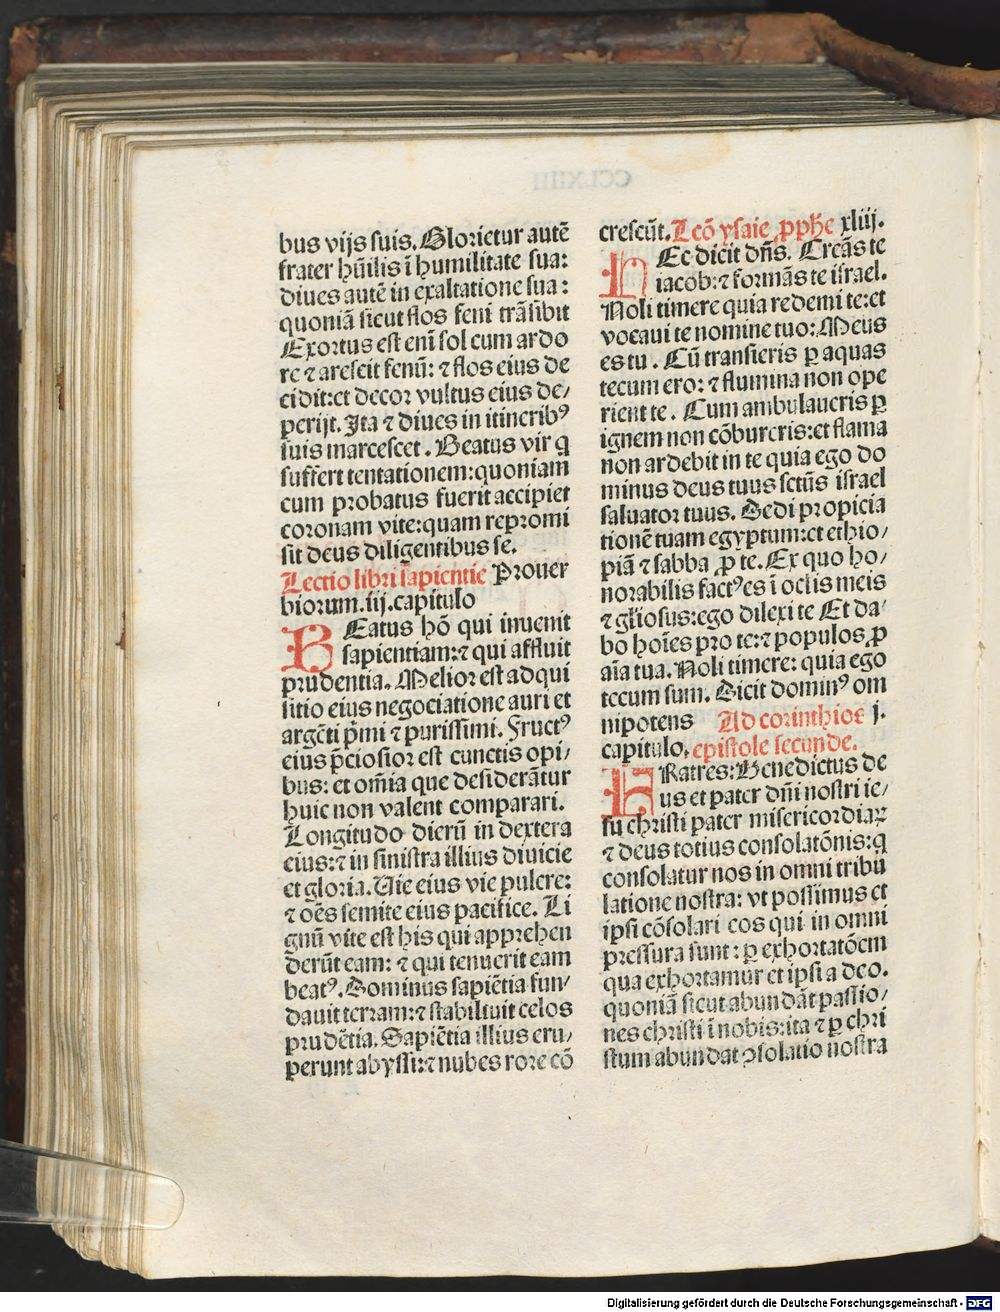 bus vijs suis. Glorietur autē
frater hūilis ī humilitate sua:
diues autē in exaltatione sua:
quoniā sicut flos feni trāsibit
Exortus est enī sol cum ardo
re ⁊ arefcit fenū: ⁊ flos eius de
cidit: et decor vultus eius de/
perijt. Ita ⁊ diues in itineribꝰ
suis marcescet. Beatus vir q
suffert tentationem: quoniam
cum probatus fuerit accipiet
coronam vite: quam repromi
sit deus diligentibus se.
Lectio libri sapientie Prouer
biorum. iij. capitulo
BEatus hō qui inuenit
sapientiam: ⁊ qui affluit
prudentia. Melior est adqui
sitio eius negociatione auri et
argēti p̄mi ⁊ purissimi. Fructꝰ
eius p̄ciosior est cunctis opi/
bus: et om̄ia que desiderātur
huic non valent comparari.
Longitudo dierū in dextera
eius: ⁊ in sinistra illius diuicie
et gloria. Vie eius vie pulcre:
⁊ oēs semite eius pacifice. Li
gnū vite est his qui apprehen
derūt eam: ⁊ qui tenuerit eam
beatꝰ. Dominus sapiētia fun/
dauit terram: ⁊ stabiliuit celos
prudētia. Sapiētia illius eru/
perunt abyssi: ⁊ nubes rore cō
crescūt. Lcō ysaie ꝓphe xliij.
HEc dicit dn̄s. Creās te
iacob: ⁊ formās te israel.
Noli timere quia redemi te: et
vocaui te nomine tuo: Meus
es tu. Cū transieris ꝑ aquas
tecum ero: ⁊ flumina non ope
rient te. Cum ambulaueris ꝑ
ignem non cōbureris: et flama
non ardebit in te quia ego do
minus deus tuus sctūs israel
saluator tuus. Dedi propicia
tionē tuam egyptum: et ethio/
piā ⁊ sabba ꝓ te. Ex quo ho/
norabilis factꝰ es ī oclis meis
⁊ gl̄iosus: ego dilexi te Et da/
bo hoīes pro te: ⁊ populos ꝓ
aīa tua. Noli timere: quia ego
tecum sum. Dicit dominꝰ om
nipotens Ad corinthios j.
capitulo. epistole secunde.
FRatres: Benedictus de
us et pater dn̄i nostri ie/
su christi pater misericordiaꝝ
⁊ deus totius consolatōnis: q
consolatur nos in omni tribu
latione nostra: vt possimus et
ipsi cōsolari eos qui in omni
pressura sunt: ꝑ exhortatōem
qua exhortamur et ipsi a deo.
quoniā sicut abundāt passio/
nes christi ī nobis: ita ⁊ ꝑ chri
stum abundat ꝯsolatio nostra
Digitalisierung gefördert durch die Deutsche Forschungsgemeinschaft - DFG